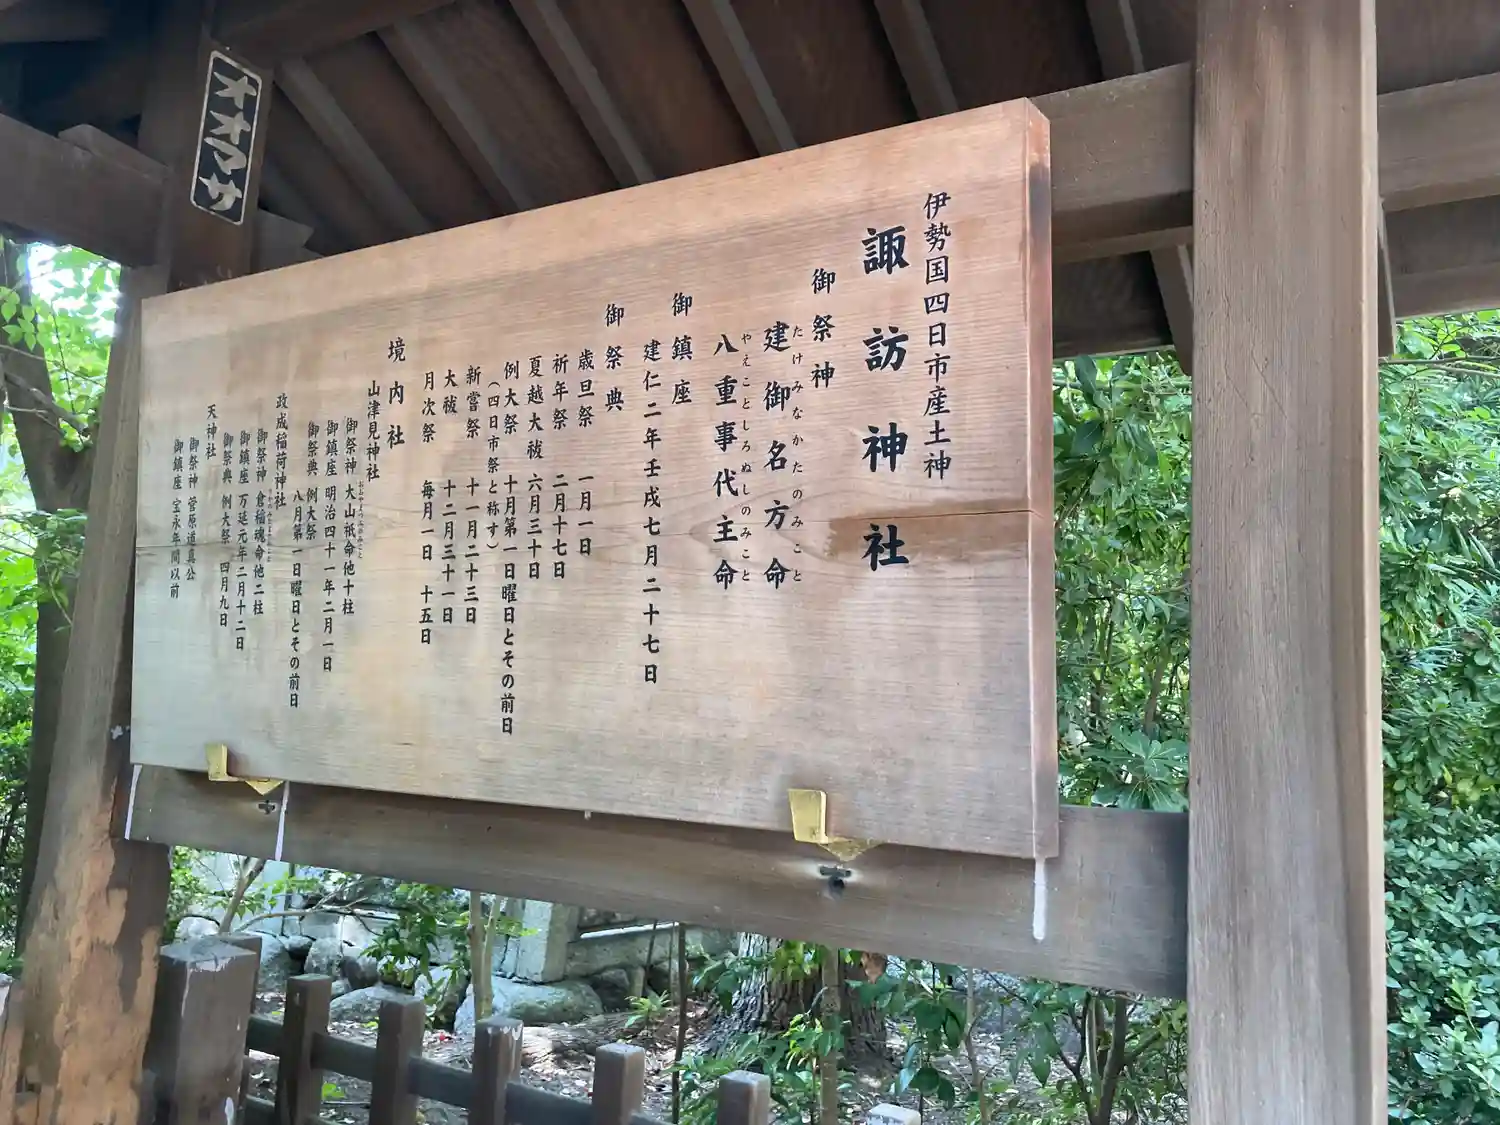 伊勢国四日市産土神
諏訪神社
御祭神
建御名方命
たけみなかたのみこと
八重事代主命
やえことしろぬしのみこと
御鎮座
建仁二年壬戌七月二十七日
御祭典
歳旦祭 一月一日
祈年祭 二月十七日
夏越大祓 六月三十日
例大祭 十月第一日曜日とその前日
(四日市祭と称す)
新嘗祭 十一月二十三日
大祓 十二月三十一日
月次祭 毎月一日 十五日
境内社
山津見神社
御祭神 大山祇命他十柱
御鎮座 明治四十一年二月一日
御祭典 例大祭
八月第一日曜日とその前日
政成稲荷神社
御祭神 倉稲魂命他二柱
御鎮座 万延元年二月十二日
御祭典 例大祭 四月九日
天神社
御祭神 菅原道真公
御鎮座 宝永年間以前
オオマサ